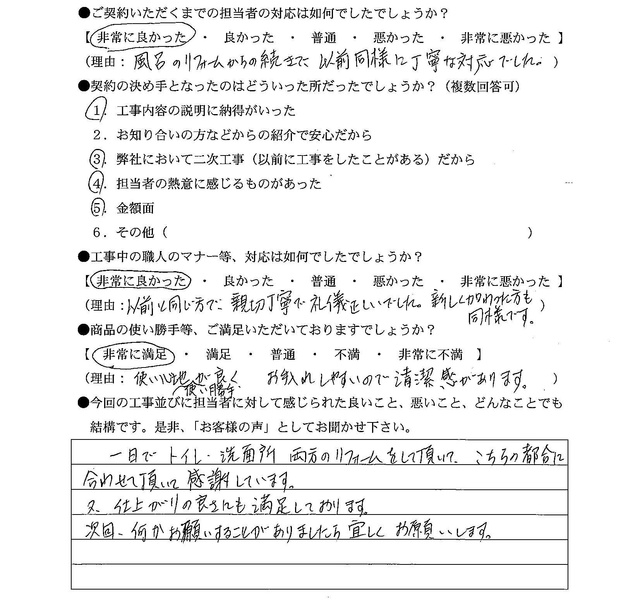 ●ご契約いただくまでの担当者の対応は如何でしたでしょうか？
【 非常に良かった ・ 良かった ・ 普通 ・ 悪かった ・ 非常に悪かった 】
(理由：風呂のリフォームからの続きで、以前同様に丁寧な対応でした。)
●契約の決め手となったのはどういった所だったでしょうか？（複数回答可）
1．工事内容の説明に納得がいった
2．お知り合いの方などからの紹介で安心だから
3．弊社において二次工事（以前に工事をしたことがある）だから
4．担当者の熱意に感じるものがあった
5．金額面
6．その他（ ）
●工事中の職人のマナー等、対応は如何でしたでしょうか？
【 非常に良かった ・ 良かった ・ 普通 ・ 悪かった ・ 非常に悪かった 】
(理由：以前と同じ方で、親切丁寧で礼儀正しいでした。新しくかわった方も
同様です。)
●商品の使い勝手等、ご満足いただいておりますでしょうか？
【 非常に満足 ・ 満足 ・ 普通 ・ 不満 ・ 非常に不満 】
(理由：使い心地が良く お手入れしやすいので清潔感があります。)
使い勝手
●今回の工事並びに担当者に対して感じられた良いこと、悪いこと、どんなことでも
結構です。是非、「お客様の声」としてお聞かせ下さい。
一日でトイレ・洗面所 両方のリフォームをして頂いて、こちらの都合に
合わせて頂いて感謝しています。
又、仕上がりの良さにも満足しております。
次回、何かお願いすることがありましたら宜しくお願いします。